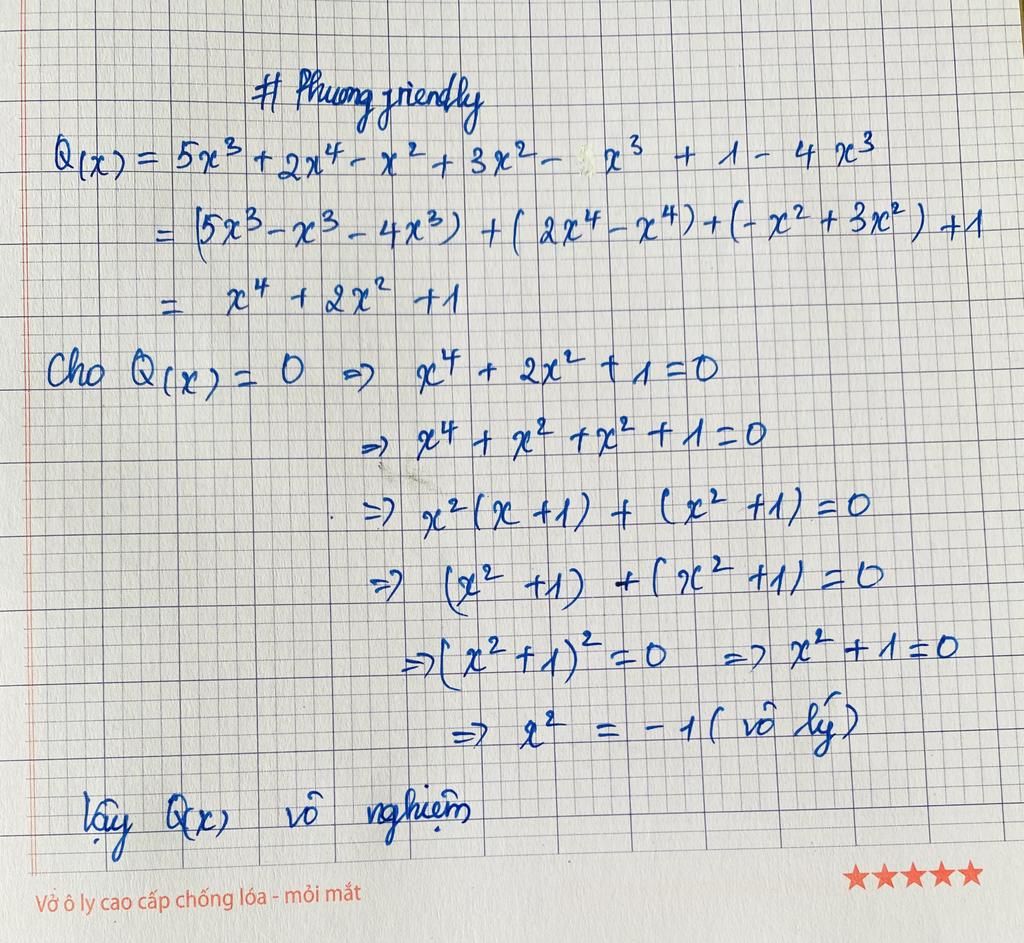 # Phuong friendly
Q(x) = 5x³ + 2x⁴ - x² + 3x² - x³ + 1 - 4x³
= (5x³ - x³ - 4x³) + (2x⁴ - x⁴) + (- x² + 3x²) + 1
= x⁴ + 2x² + 1
Cho Q(x) = 0 => x⁴ + 2x² + 1 = 0
=> x⁴ + x² + x² + 1 = 0
=> x² (x + 1) + (x² + 1) = 0
=> (x² + 1) + (x² + 1) = 0
=> (x² + 1)² = 0 => x² + 1 = 0
=> x² = - 1 ( vô lý)
Vậy Q(x) vô nghiệm
Vở ô ly cao cấp chống lóa - mỏi mắt